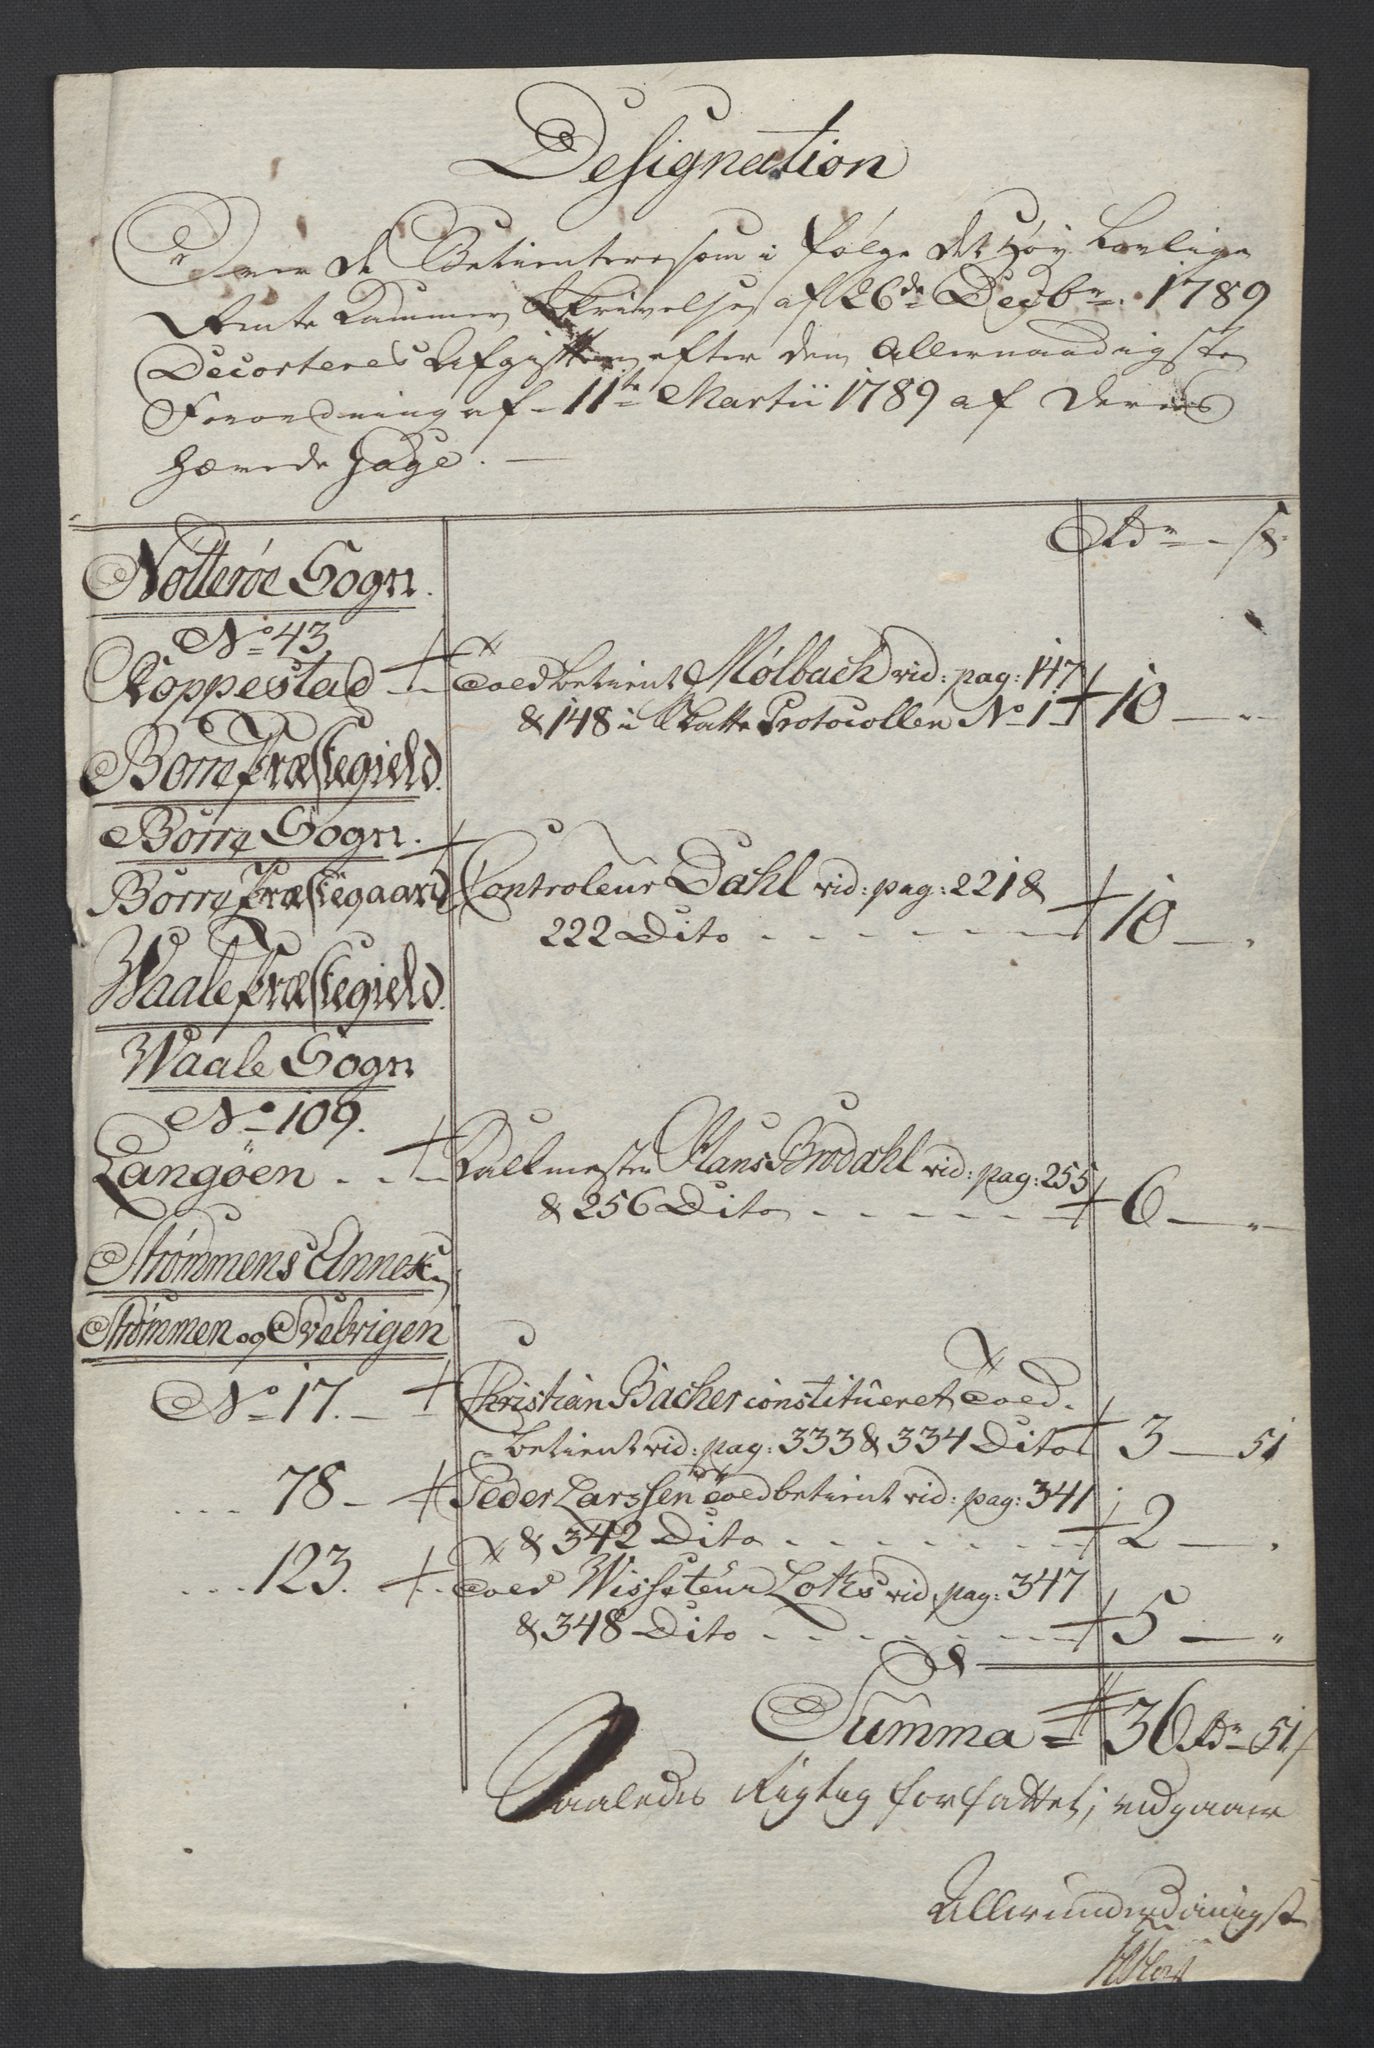 Designation
Over de Betientere som i følge det Høy Lovlige
Rente Kammers Skrivelse af 26de Decbr: 1789
Decorteres Afgiften efter den Allernaadigste
Forordning af 11te Martii 1789 af deres
hævede Gage. —
Rdr — s:
Nøtterøe Sogn.
No 43
Koppestad — Toldbetient Mølbach vid: pag: 147
& 148 i Skatte Protocollen No 1 10 — "
Borre Præstegield.
Borre Sogn.
Borre Præstegaard Controleur Dahl vid: pag: 221 &
222 Dito - - - - - 10 — "
Waale Præstegield.
Waale Sogn
No 109.
Langøen - - - Hans Brodahl vid: pag: 255
& 256 Dito - - - - - 6 — "
Strømmens Annex
Strømmen og Svelvigen
No 17. — Christian Bacher constitueret Told-
betient vid: pag: 333 & 334 Dito 3 — 51
- - - 78 — Peder Larssen Toldbetient vid: pag: 341
& 342 Dito - - - - - 2 — "
- - - 123. - - Told Wissiteur Lokes vid: pag: 347
& 348 Dito - - - - - 5 — "
Summa = 36 Rdr 51 s
Saaledes Rigtig forfattet, vidgaaer
Allerunderdanigst